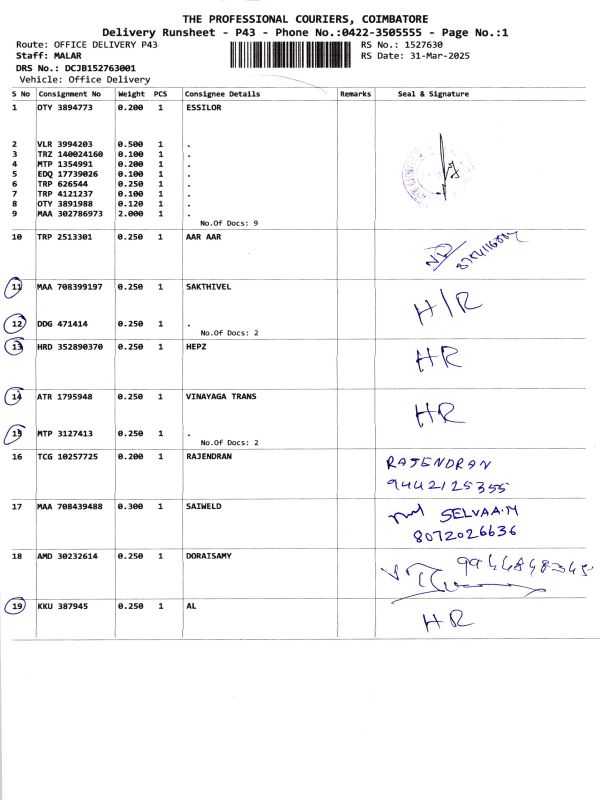 THE PROFESSIONAL COURIERS, COIMBATORE
Delivery Runsheet - P43 - Phone No.:0422-3505555 - Page No.:1
Route: OFFICE DELIVERY P43 RS No.: 1527630
Staff: MALAR RS Date: 31-Mar-2025
DRS No.: DCJB152763001
Vehicle: Office Delivery
S No Consignment No Weight PCS Consignee Details Remarks Seal & Signature
1 OTY 3894773 0.200 1 ESSILOR
2 VLR 3994203 0.500 1 .
3 TRZ 140024160 0.100 1 .
4 MTP 1354991 0.200 1 .
5 EDQ 17739026 0.100 1 .
6 TRP 626544 0.250 1 .
7 TRP 4121237 0.100 1 .
8 OTY 3891988 0.120 1 .
9 MAA 302786973 2.000 1 .
No.Of Docs: 9
10 TRP 2513301 0.250 1 AAR AAR
11 MAA 708399197 0.250 1 SAKTHIVEL
H/R
12 DDG 471414 0.250 1 .
No.Of Docs: 2
13 HRD 352890370 0.250 1 HEPZ
HR
14 ATR 1795948 0.250 1 VINAYAGA TRANS
HR
15 MTP 3127413 0.250 1 .
No.Of Docs: 2
16 TCG 10257725 0.200 1 RAJENDRAN
RAJENDRAN
9442125355
17 MAA 708439488 0.300 1 SAIWELD
SELVAA.M
8072026636
18 AMD 30232614 0.250 1 DORAISAMY
9944848345
19 KKU 387945 0.250 1 AL
HR